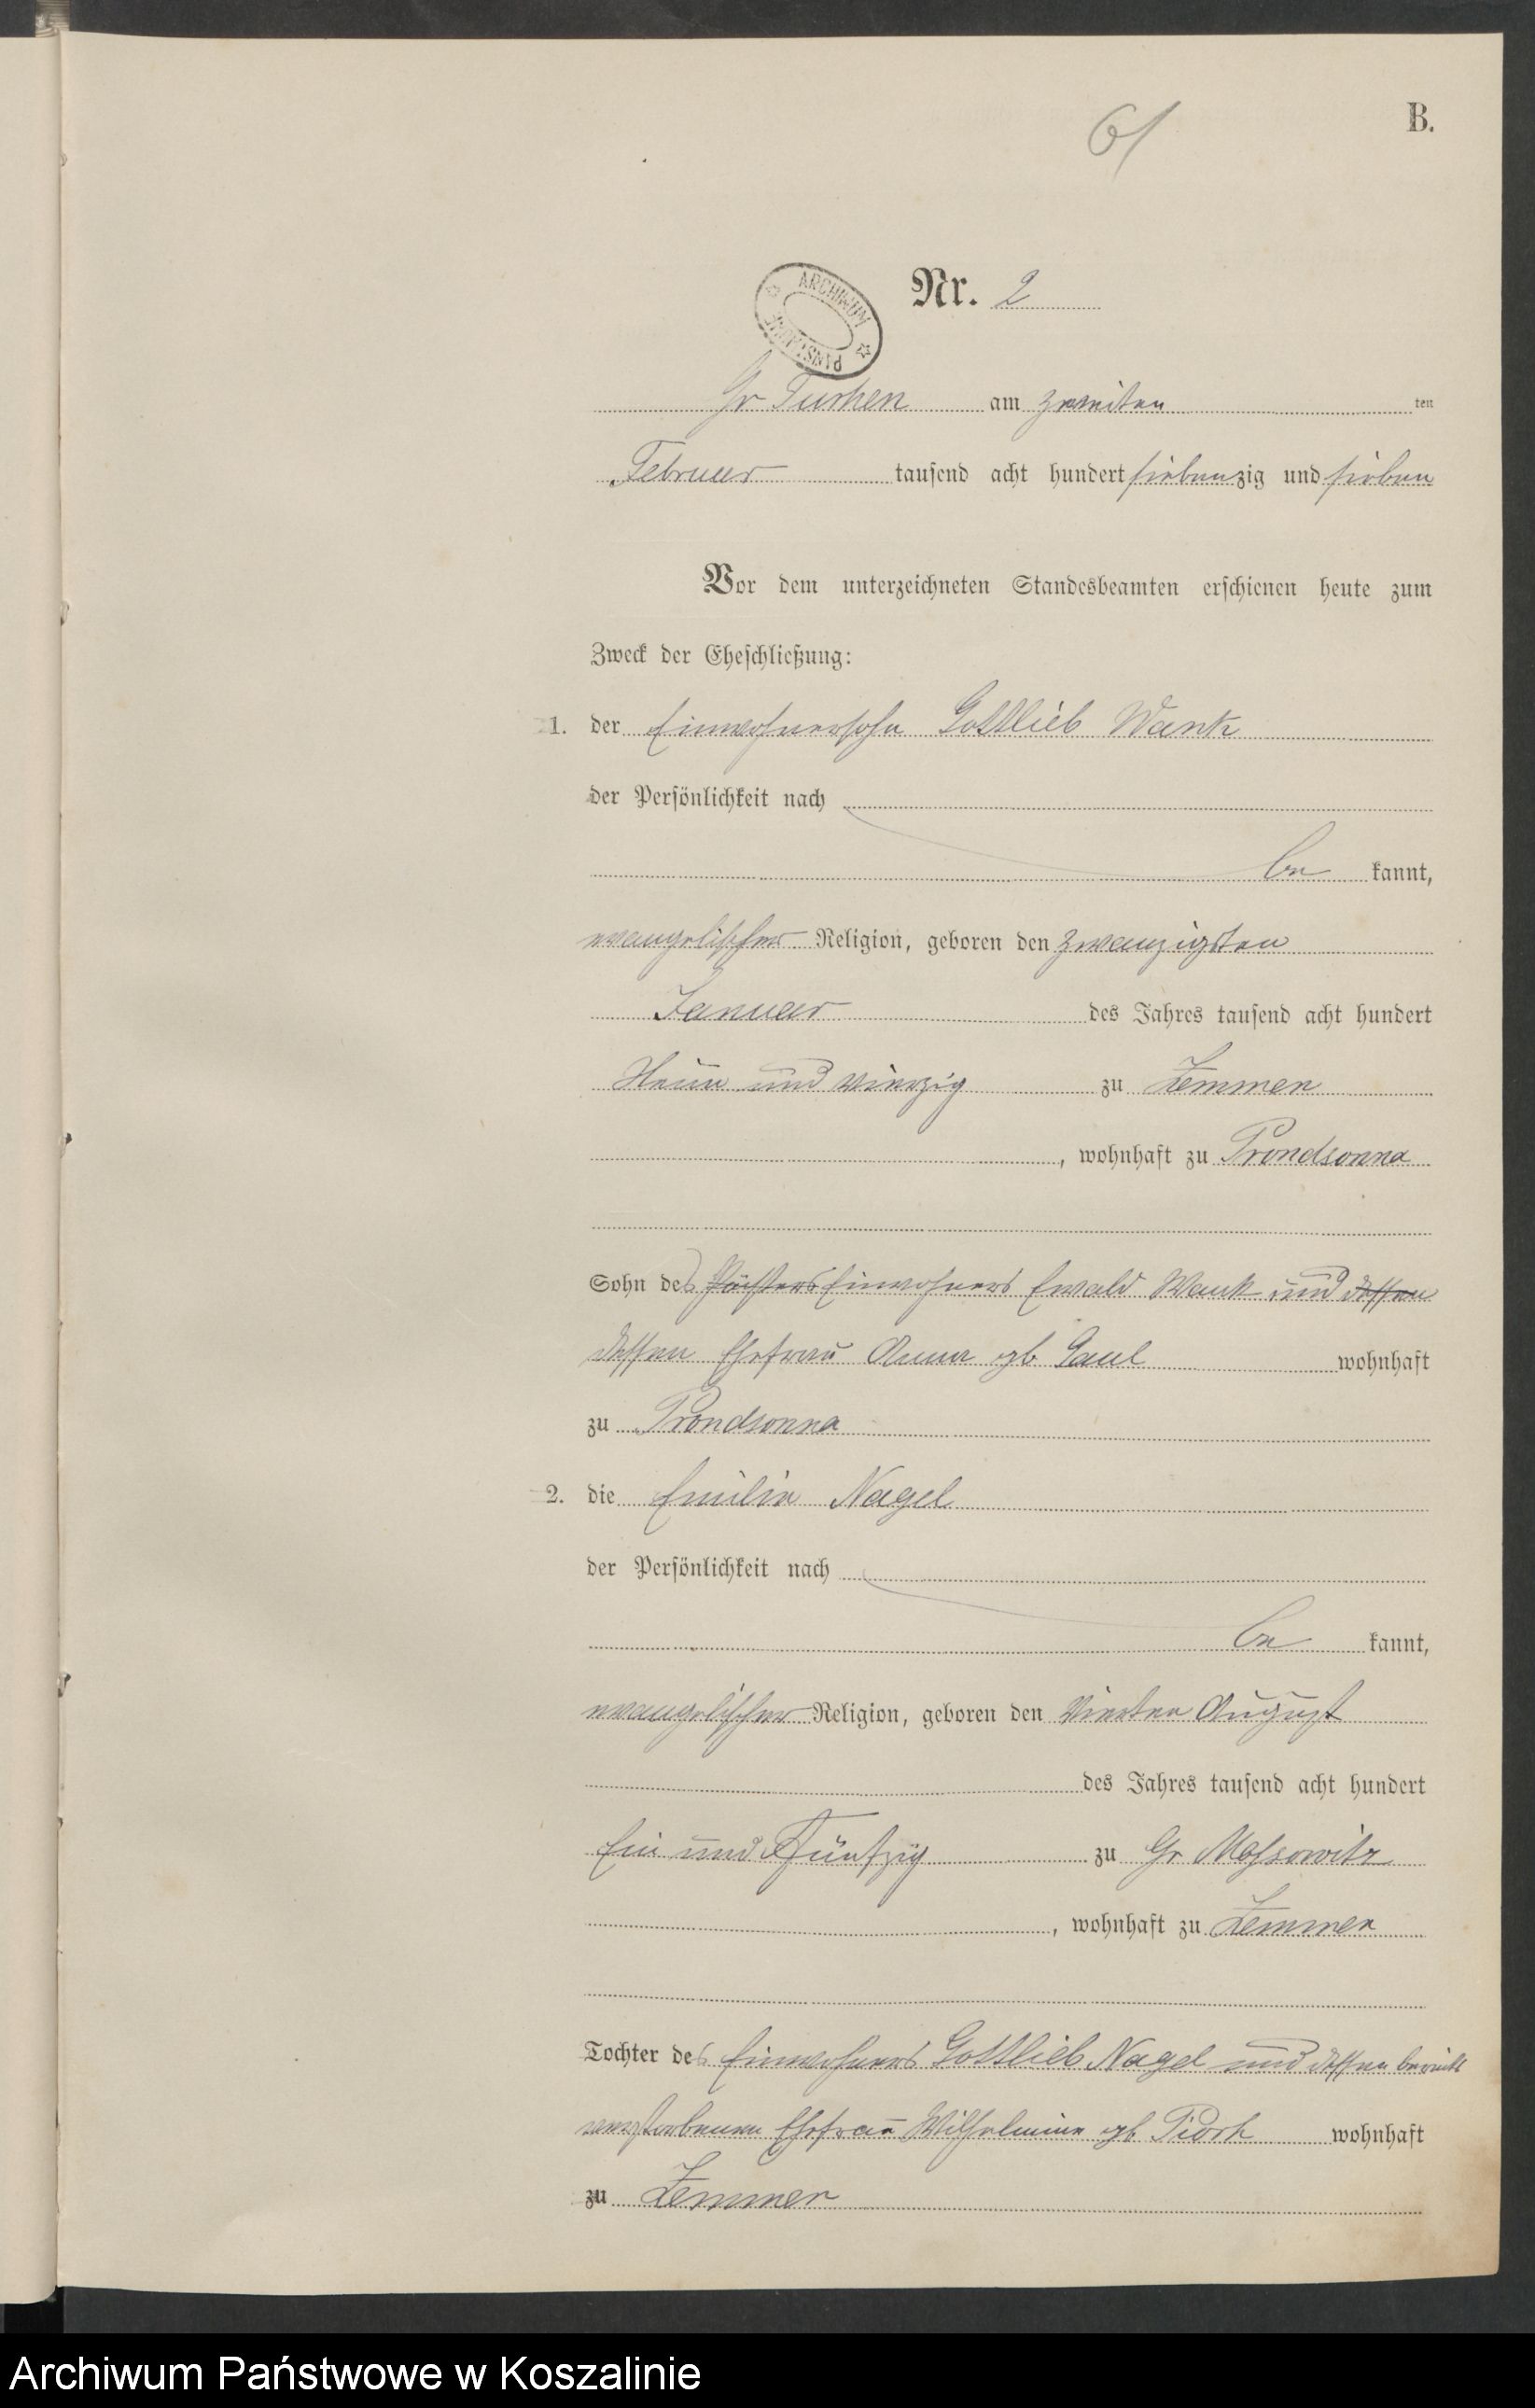 61
B.
ARCHIWUM PAŃSTWOWE
Nr. 2
Gr Tuchen am zweiten ten
Februar tausend acht hundert siebenzig und sieben
Vor dem unterzeichneten Standesbeamten erschienen heute zum
Zweck der Eheschließung:
1. der Einwohnersohn Gottlieb Wank
der Persönlichkeit nach
be kannt,
evangelischer Religion, geboren den zwanzigsten
Januar des Jahres tausend acht hundert
Neun und vierzig zu Zemmen
, wohnhaft zu Prondsonna
Sohn des Einwohners Ewald Wank und dessen
dessen Ehefrau Anna gb Gaul wohnhaft
zu Prondsonna
2. die Emilie Nagel
der Persönlichkeit nach
be kannt,
evangelischer Religion, geboren den Vierten August
des Jahres tausend acht hundert
Ein und Fünfzig zu Gr Massowitz
, wohnhaft zu Zemmen
Tochter des Einwohners Gottlieb Nagel und dessen bereits
verstorbenen Ehefrau Wilhelmine gb wohnhaft
zu Zemmen
Archiwum Państwowe w Koszalinie